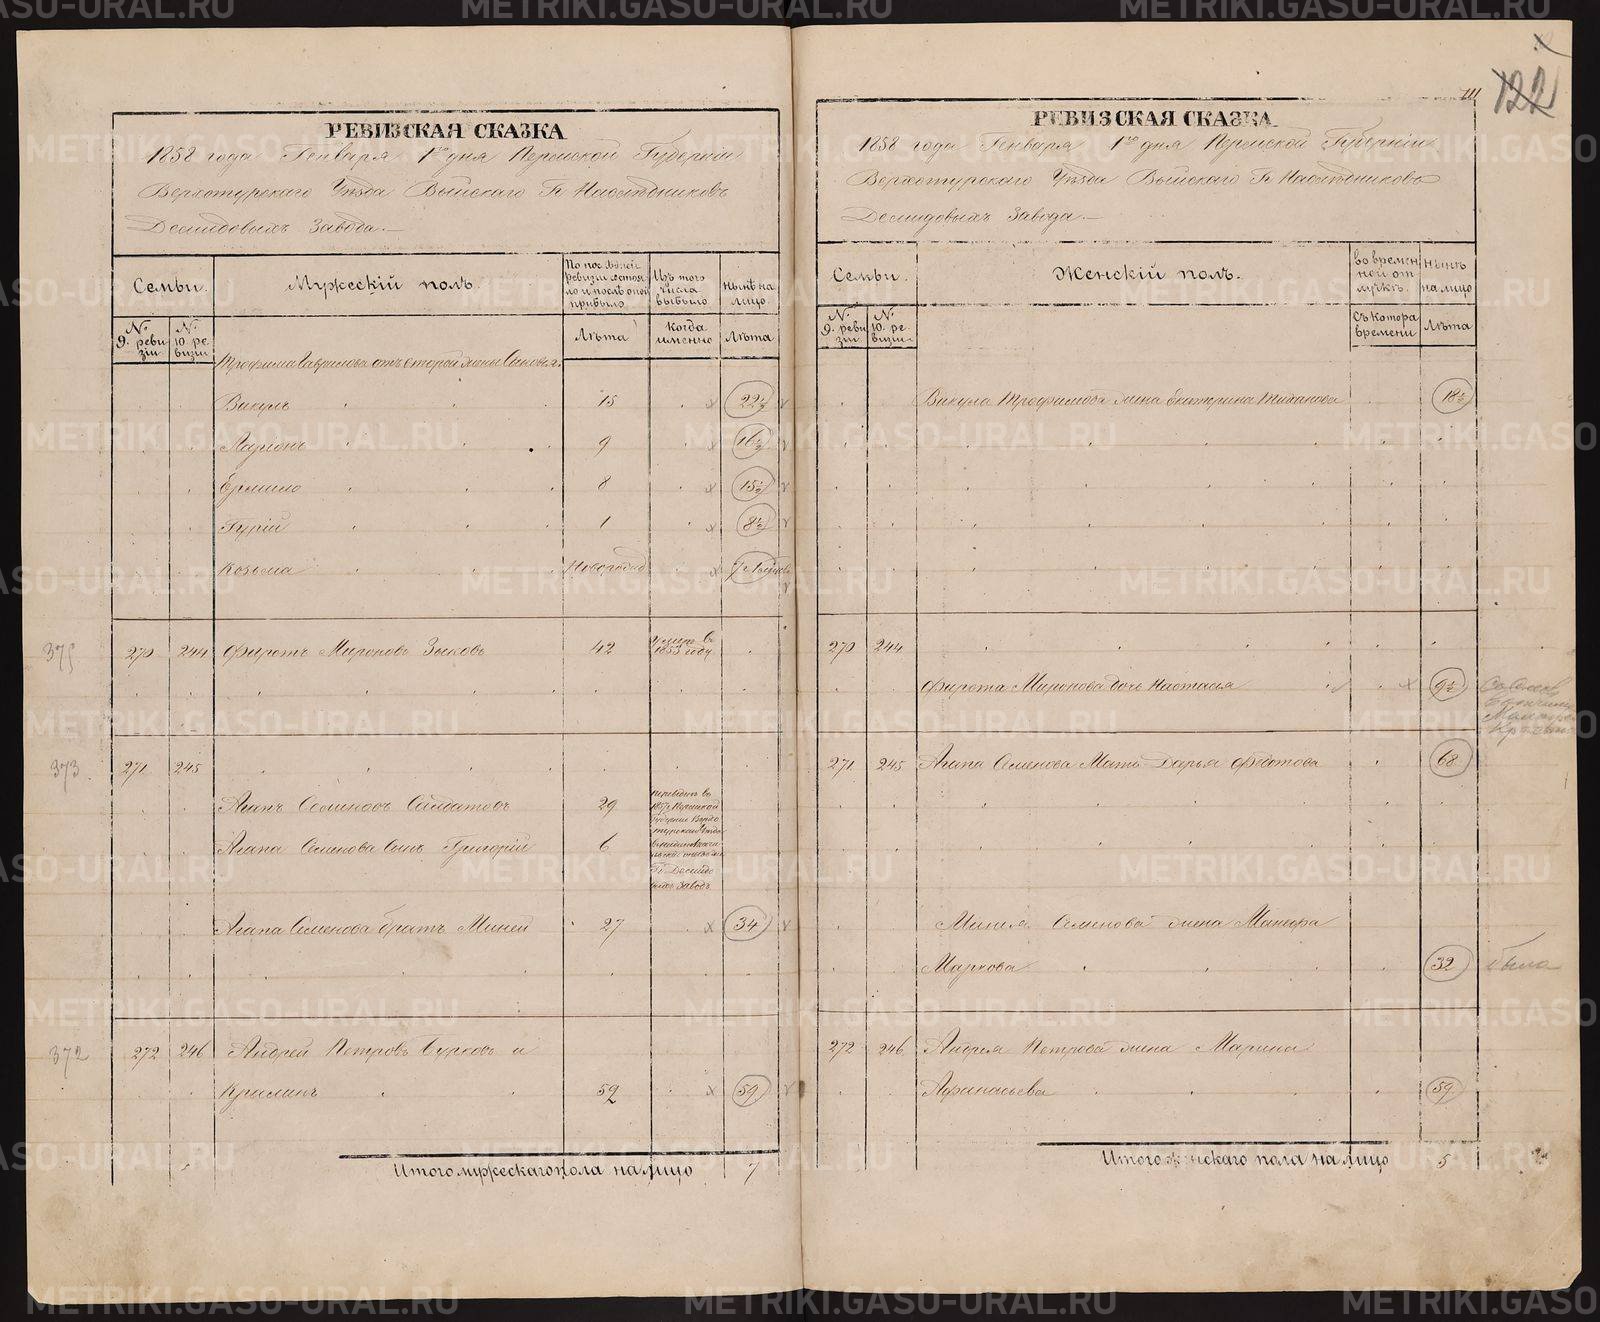 РЕВИЗСКАЯ СКАЗКА
1858 года Генваря 1го дня Пермской Губерніи
Верхотурскаго Уѣзда Выйскаго Гг. Наслѣдниковъ
Демидовыхъ Завода.
Семьи.
Мужескій полъ.
По послѣдней ревизіи состояло и послѣ оной прибыло.
Изъ того числа выбыло.
Нынѣ на лицо.
№ 9. ревизіи
№ 10. ревизіи
Лѣта
Когда именно
Лѣта
Трофима Гаврилова отъ второй жены Сыновья.
Викулъ 15 22½
Ларіонъ 9 16½
Ермило 8 15½
Гурій 1 8½
Козьма Новорожд 7
375 270 244 Фиротъ Мироновъ Зыковъ 42 умеръ въ 1853 году
373 271 245
Агапъ Семеновъ Солдатовъ 29
переведенъ въ
1857 г. Пермской
Губерніи Верхо
турскаго Уѣзда
Агапа Семенова Сынъ Григорій 6
Гг. Демидо
выхъ Заводъ
Агапа Семенова братъ Миней 27 34
372 272 246 Андрей Петровъ Бурковъ и
Крилинъ 52 59
Итого мужескаго пола на лицо 7
111
122
РЕВИЗСКАЯ СКАЗКА
1858 года Генваря 1го дня Пермской Губерніи
Верхотурскаго Уѣзда Выйскаго Гг. Наслѣдниковъ
Демидовыхъ Завода.
Семьи.
Женскій полъ.
Во временной отлучкѣ.
Нынѣ на лицо
№ 9. ревизіи
№ 10. ревизіи
Съ котора времени
Лѣта
Викула Трофимова жена Екатерина 18½
270 244
Фирота Миронова дочь Настасья 9½
271 245 Агапа Семенова Мать Дарья Федотова 68
Минея Семенова жена Манефа
Маркова 32
272 246 Андрея Петрова жена Марина
Афанасьева 59
Итого женскаго пола на лицо 5
METRIKI.GASO-URAL.RU